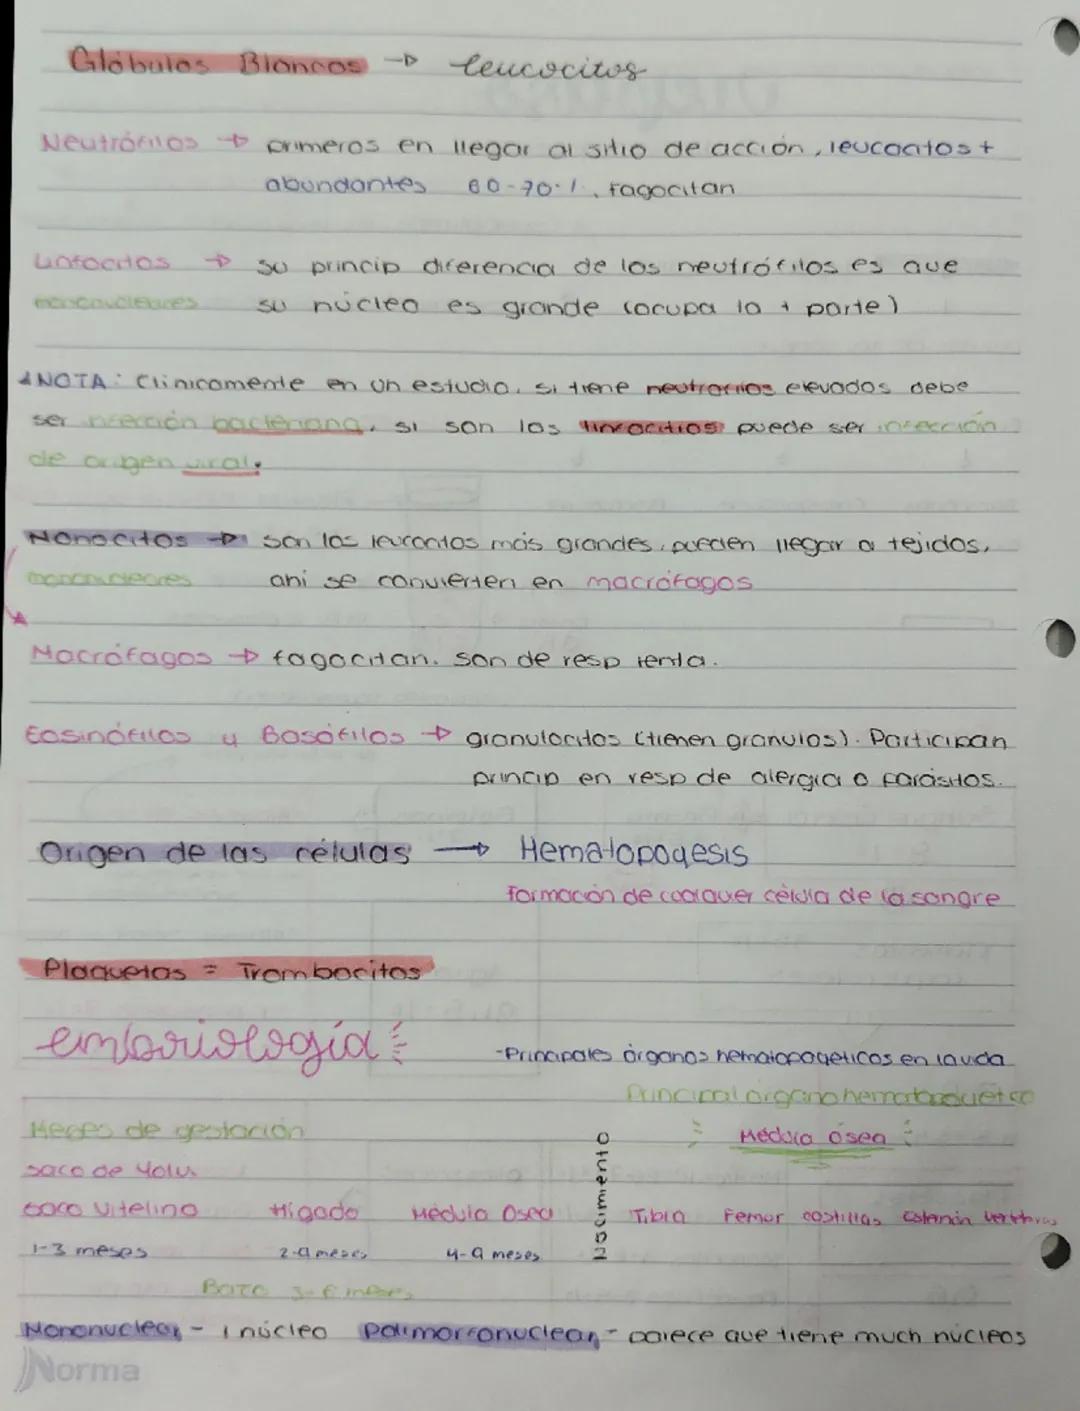 Glóbulos Blancos → leucocitos
Neutrófilos → primeros en llegar al sitio de acción, leucocitos +
abundantes 60-70%, fagocitan
Linfocitos → su princip diferencia de los neutrófilos es que
mononucleares su núcleo es grande (ocupa la + parte)
NOTA: Clinicamente en un estudio, si tiene neutrofilos elevados debe
ser infección bacteriana, si son los linfocitos puede ser infección
de origen viral.
Monocitos → son los leucocitos más grandes, pueden llegar a tejidos,
mononucleares ahi se convierten en macrófagos
Macrófagos → fagocitan. Son de resp lenta.
Eosinófilos y Basófilos → granulocitos (tienen granulos). Participan
princip en resp de alergia o parásitos.
Origen de las células → Hematopoyesis
Formación de cualquier célula de la sangre
Plaquetas = Trombocitos
embriología
-Principales órganos hematopoyeticos en la vida
Principal órgano hematopoyetico
Meses de gestación Médula ósea
saco de Yolk
saco Vitelino Hígado Médula Osea nacimiento Tibia Femor costillas Esternón vertebras
1-3 meses 2-9 meses 4-9 meses
Bazo 3-6 meses
Mononuclear - 1 núcleo Polimorfonuclear - parece que tiene much núcleos
Norma